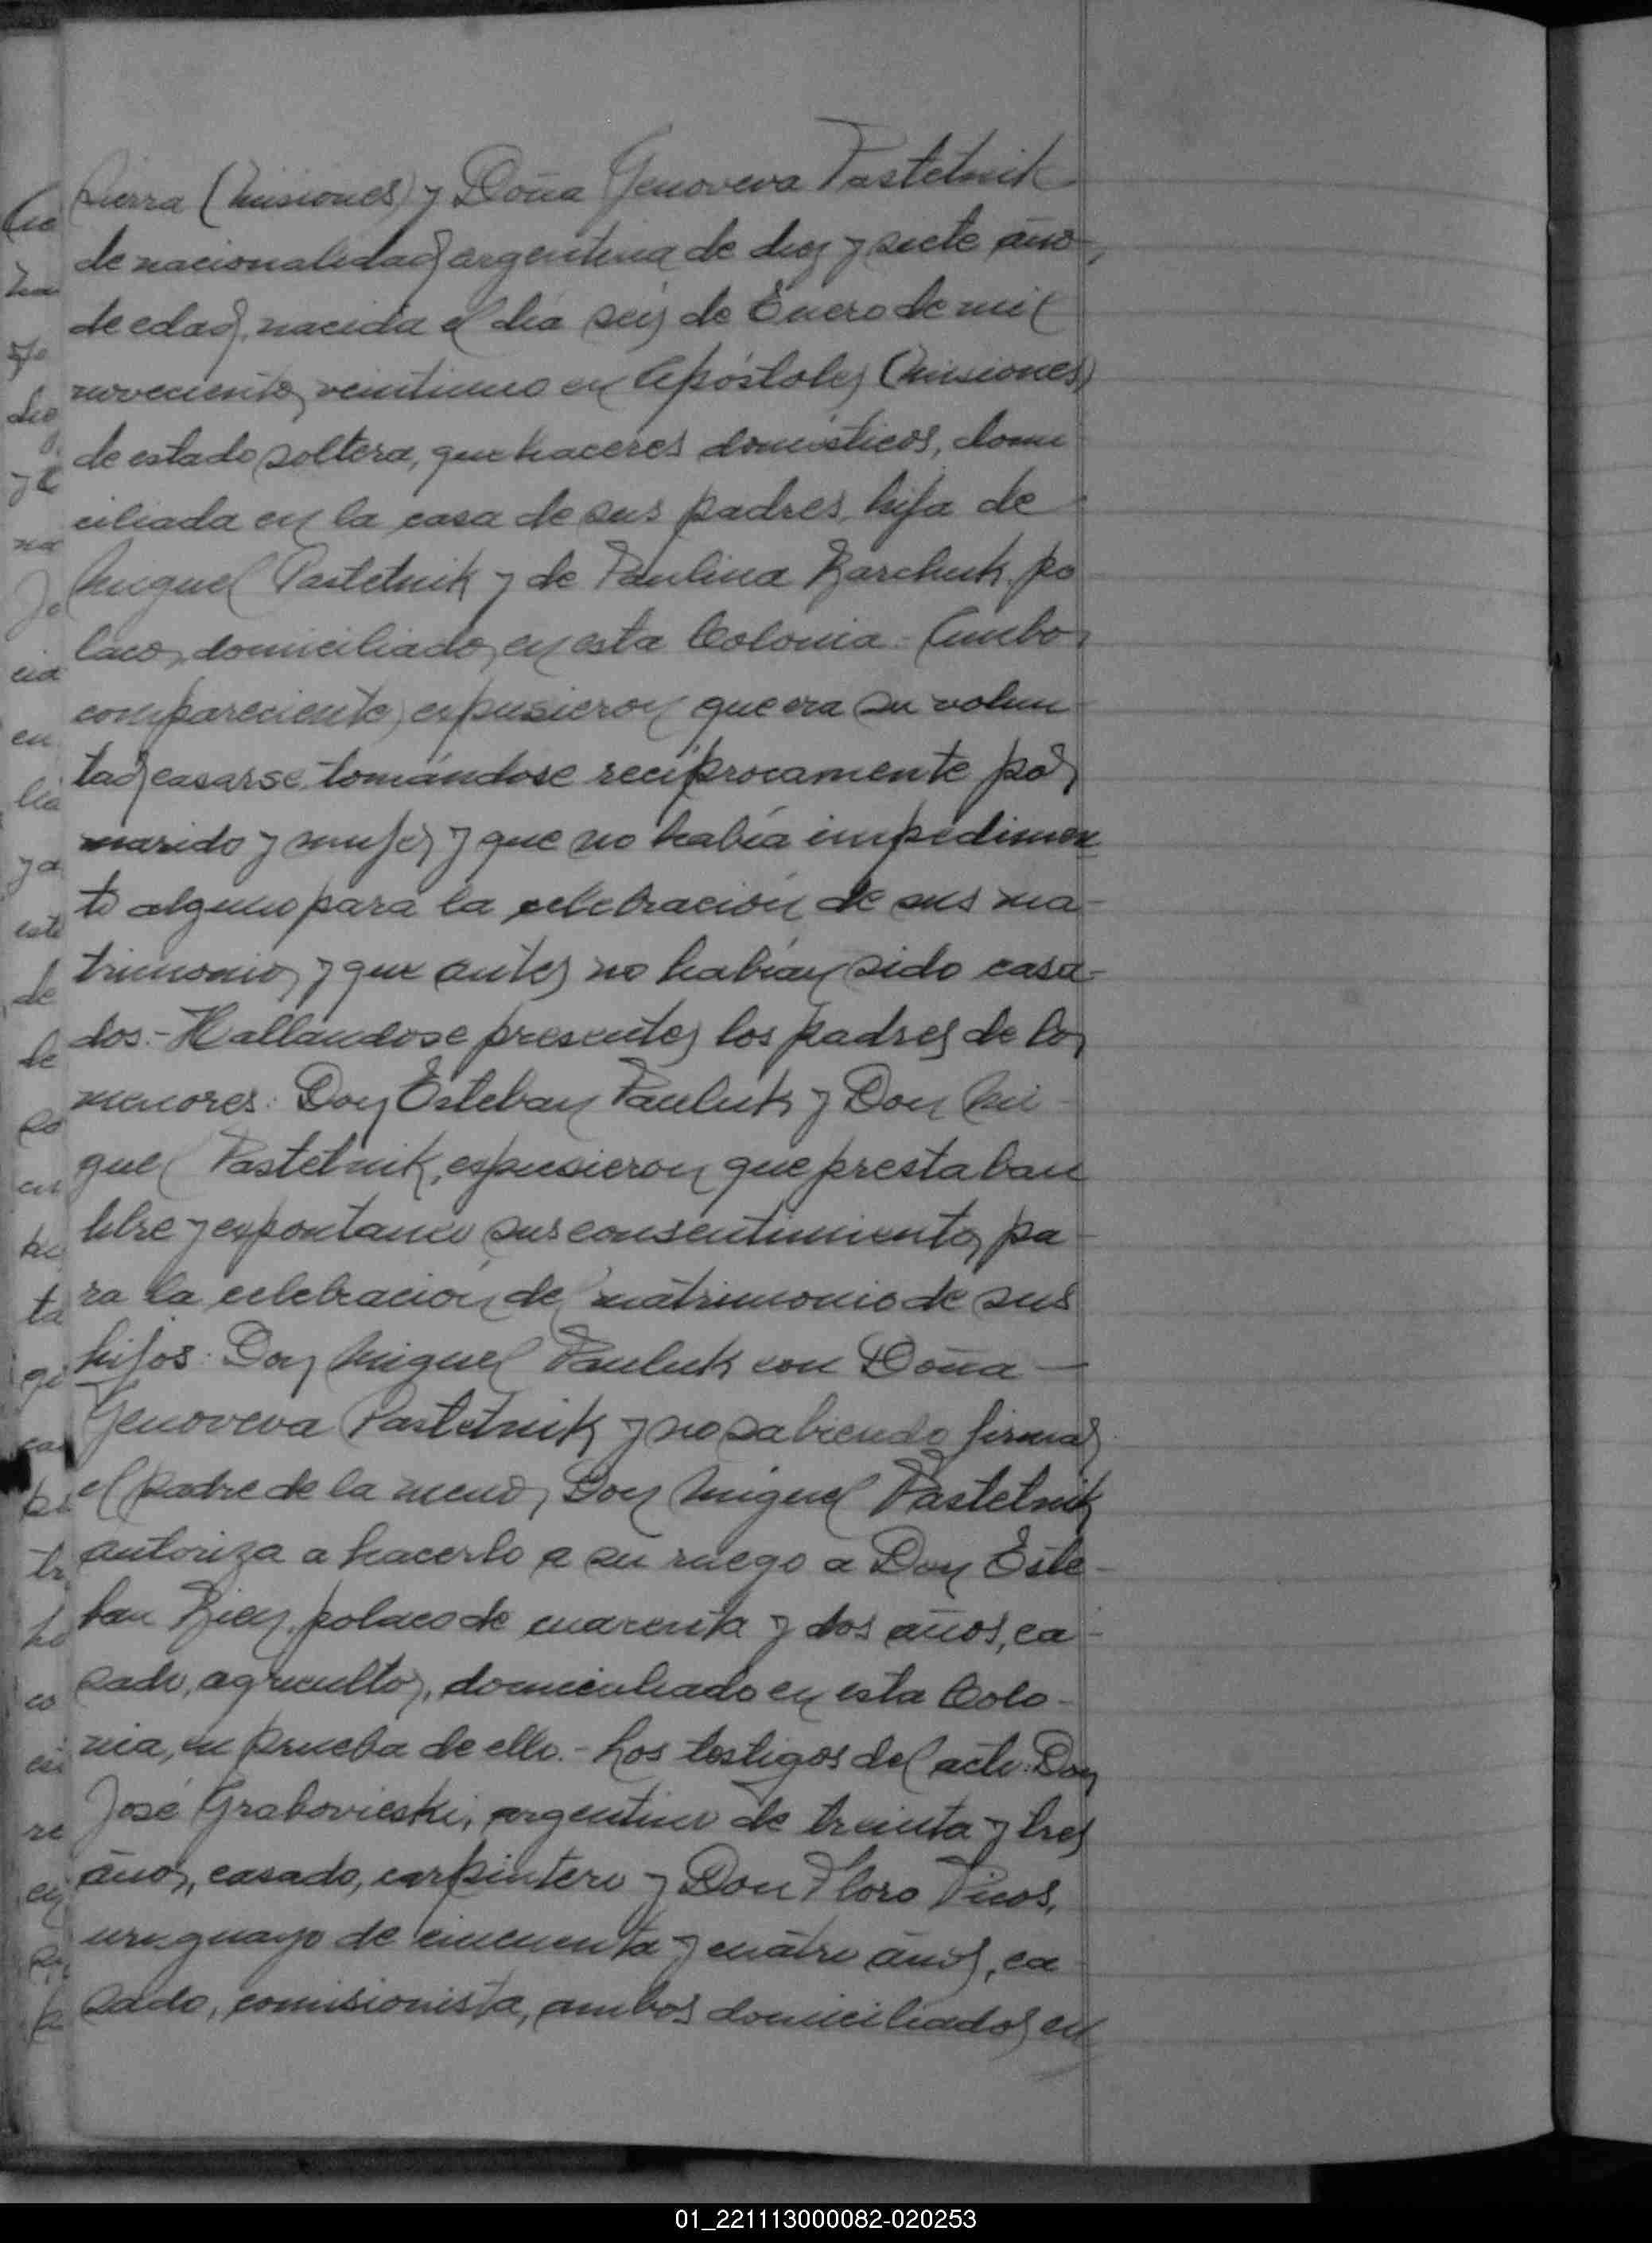 Sierra (Misiones) y Doña Genoveva Pastetnik
de nacionalidad argentina de diez y siete años,
de edad, nacida el día seis de Enero de mil
novecientos veintiuno en Apóstoles (Misiones)
de estado soltera, quehaceres domésticos, domi
ciliada en la casa de sus padres, hija de
Miguel Pastetnik y de Paulina Barchuk, po
lacos, domiciliados en esta Colonia.- Ambos
comparecientes expusieron que era su volun
tad casarse, tomándose recíprocamente por
marido y mujer y que no había impedimen
to alguno para la celebración de sus ma-
trimonio, y que antes no habían sido casa-
dos.- Hallándose presentes los padres de los
menores: Don Esteban Pauluk y Don Mi-
guel Pastetnik, expusieron que prestaban
libre y expontaneo sus consentimientos pa-
ra la celebración del matrimonio de sus
hijos: Don Miguel Pauluk con Doña —
Genoveva Pastetnik y no sabiendo firmar
el padre de la menor, Don Miguel Pastetnik
autoriza a hacerlo a su ruego a Don Este-
ban polaco de cuarenta y dos años, ca-
sado, agricultor, domiciliado en esta Colo-
nia, en prueba de ello.- Los testigos del acto: Don
José Grabovieski, argentino de treinta y tres
años, casado, carpintero y Don Floro Pinos,
uruguayo de cincuenta y cuatro años, ca
sado, comisionista, ambos domiciliados en
01_221113000082-020253